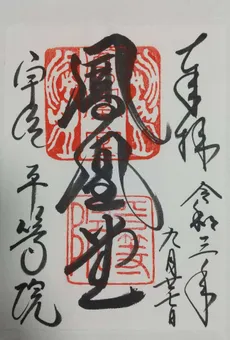 奉拝
令和三年
九月廿七日
鳳凰堂
宇治 平等院